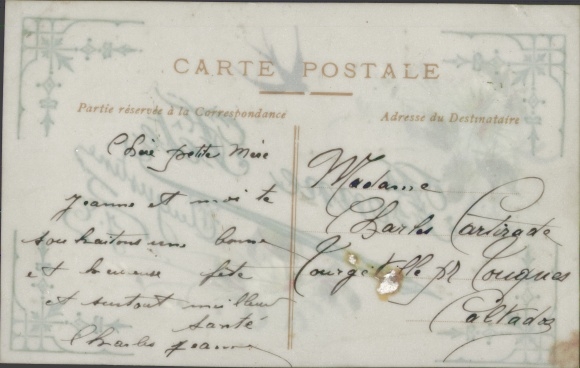 CARTE POSTALE
Partie réservée à la Correspondance
Adresse du Destinataire
Chère petite Mère
Jeanne et moi te
souhaitons une bonne
et heureuse fête
et surtout meilleur
santé
Charles Jeanne
Madame
Charles
Tourgéville pr Touques
Calvados